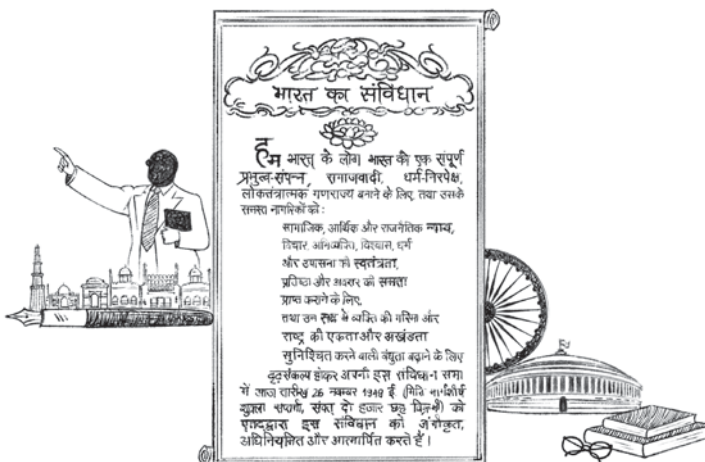 भारत का संविधान
हम भारत के लोग भारत को एक संपूर्ण
प्रभुत्व-संपन्न, समाजवादी, धर्म-निरपेक्ष,
लोकतंत्रात्मक गणराज्य बनाने के लिए, तथा उसके
समस्त नागरिकों को:
सामाजिक, आर्थिक और राजनैतिक न्याय,
विचार, अभिव्यक्ति, विश्वास, धर्म
और उपासना की स्वतंत्रता,
प्रतिष्ठा और अवसर की समता
प्राप्त कराने के लिए,
तथा उन सब में व्यक्ति की गरिमा और
राष्ट्र की एकता और अखंडता
सुनिश्चित करने वाली बंधुता बढ़ाने के लिए
दृढ़संकल्प होकर अपनी इस संविधान सभा
में आज तारीख 26 नवम्बर 1949 ई. (मिति मार्गशीर्ष
शुक्ला सप्तमी, संवत् दो हजार छह विक्रमी) को
एतद्द्वारा इस संविधान को अंगीकृत,
अधिनियमित और आत्मार्पित करते हैं।